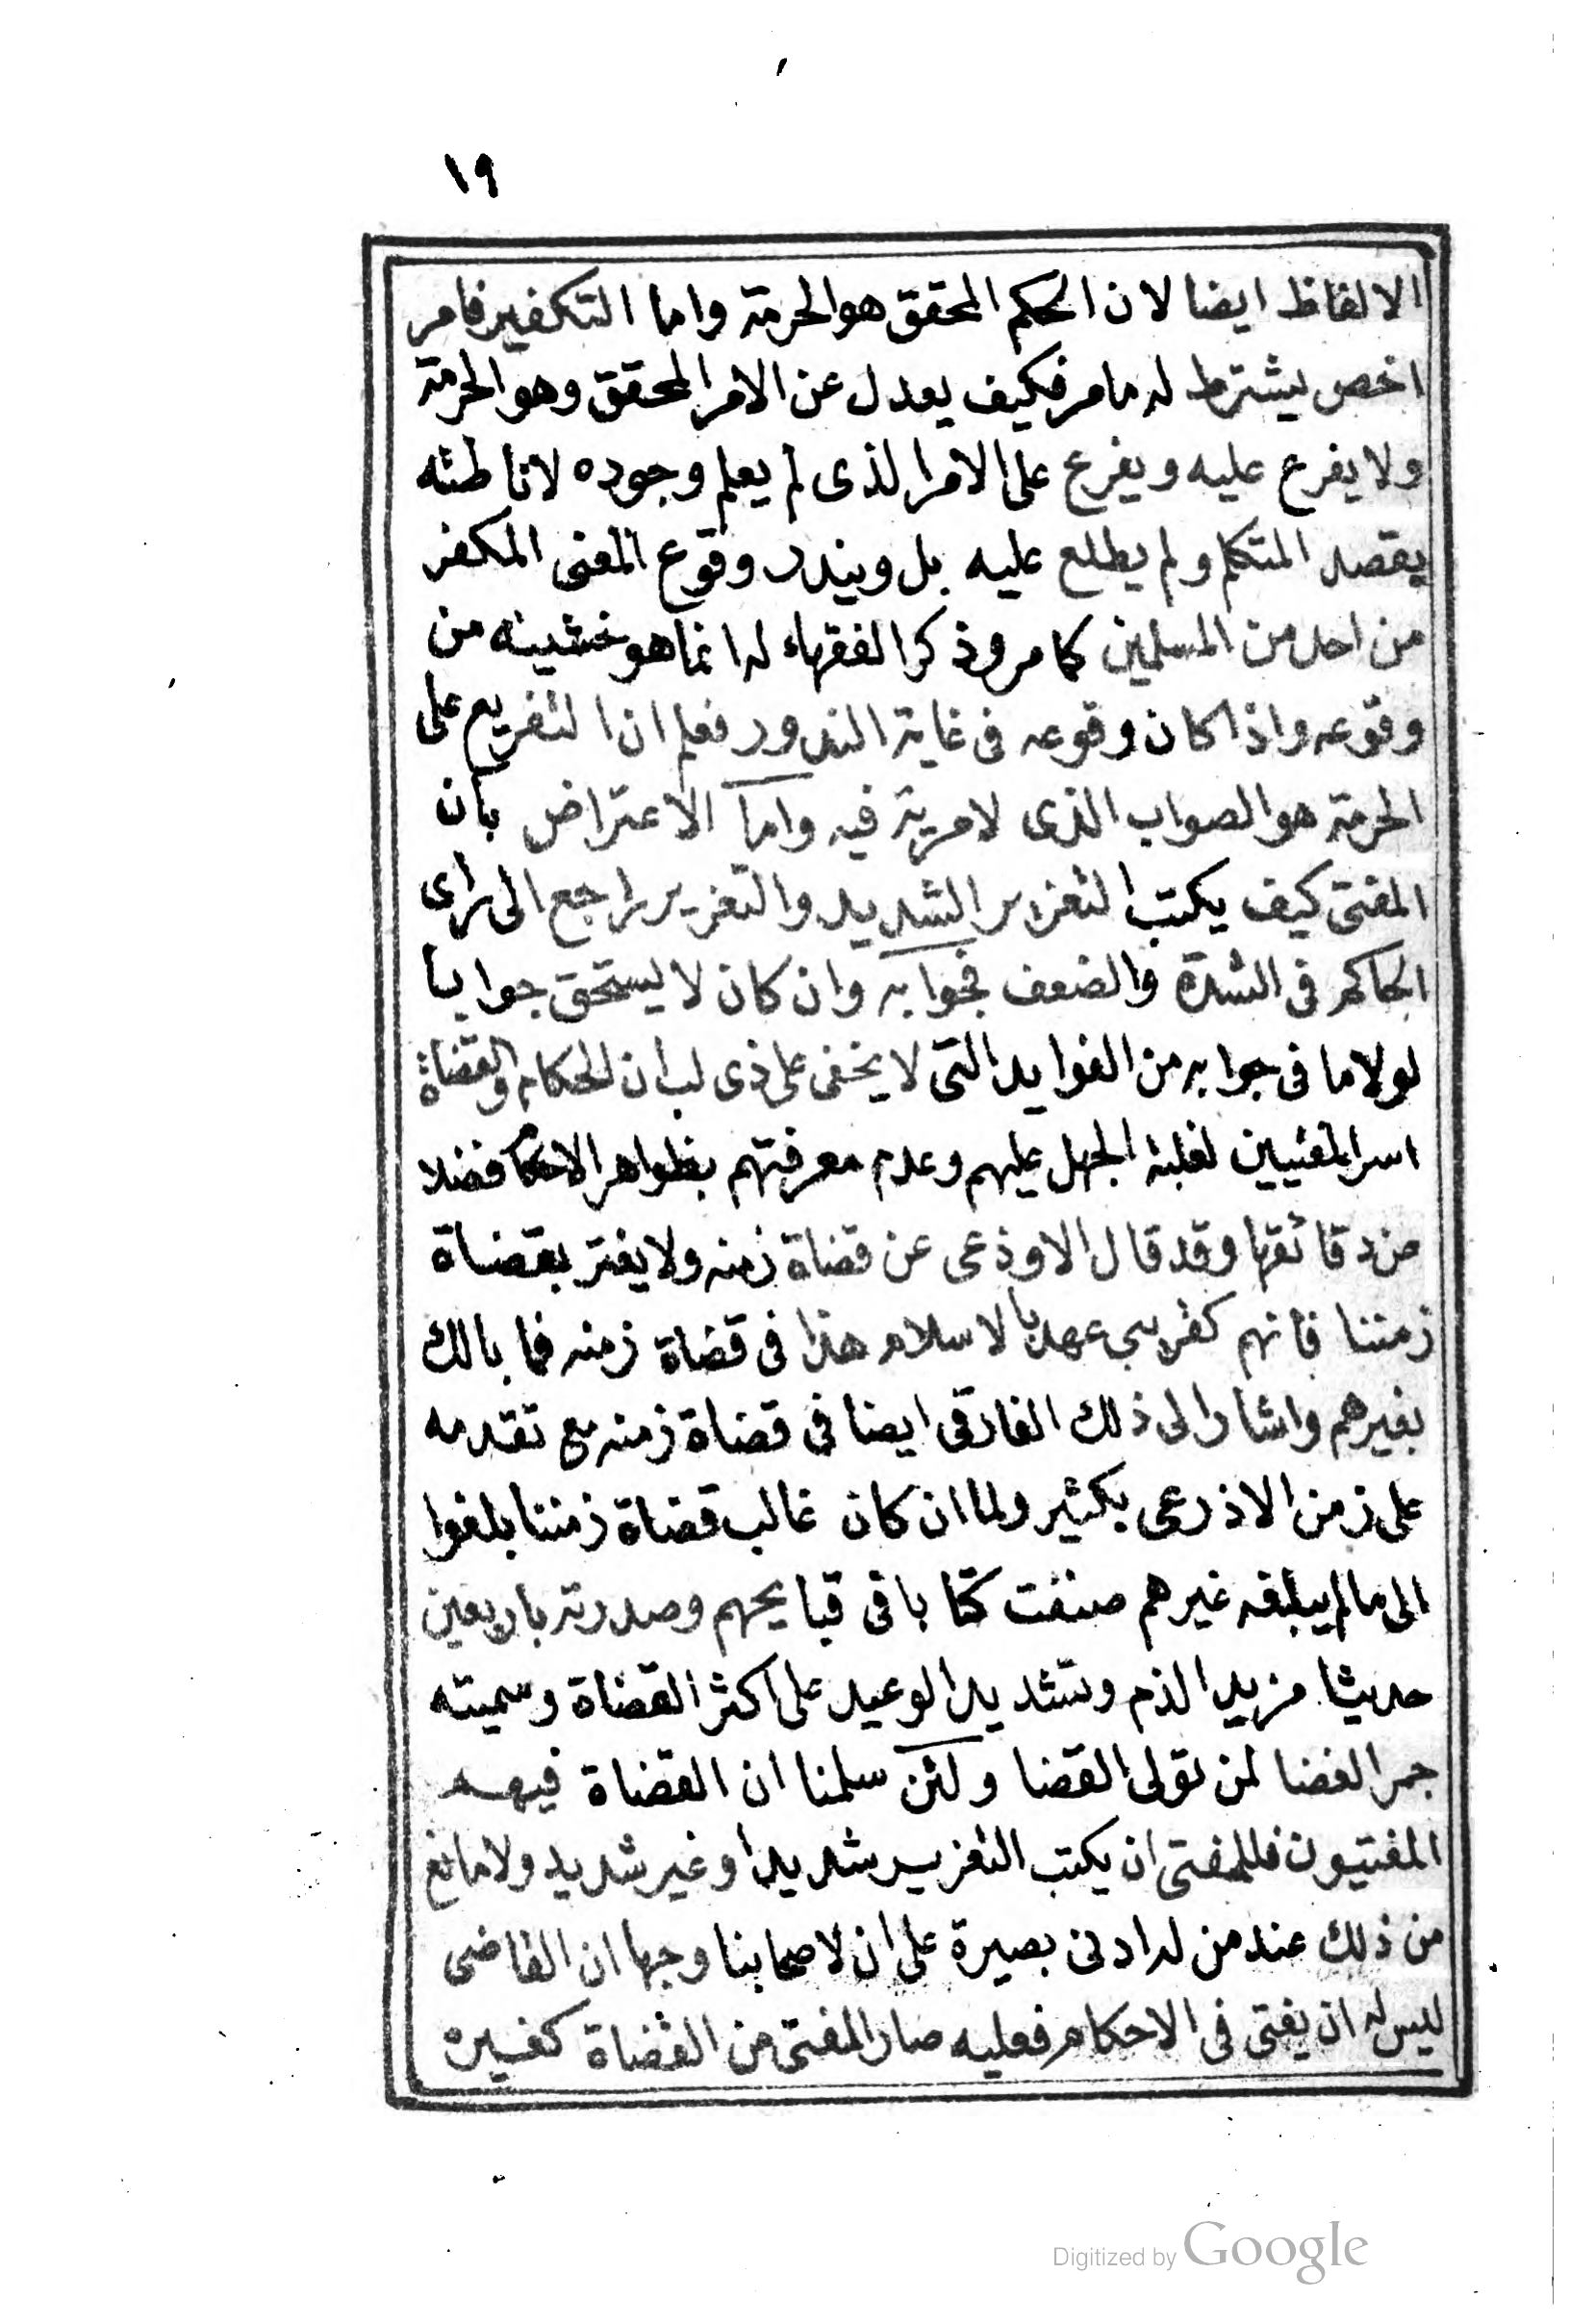 ١٩
الالفاظ ايضا لان الحكم المحقق هو الحرمة واما التكفير فامر
اخص يشترط له ما مر فكيف يعدل عن الامر المحقق وهو الحرمة
ولا يفرع عليه ويفرع على الامر الذى لم يعلم وجوده لاناطته
يقصد المتكلم ولم يطلع عليه بل ويندر وقوع المعنى المكفر
من احد من المسلمين كما مر وذكر الفقهاء له انما هو خشيته من
وقوعه واذا كان وقوعه فى غاية الندور فعلم ان التفريع على
الحرمة هو الصواب الذى لا مرية فيه واما الاعتراض بأن
المفتى كيف يكتب التعزير الشديد والتعزير راجع الى راى
الحاكم فى الشدة والضعف فجوابه وان كان لا يستحق جوابا
لولا ما فى جوابه من الفوايد التى لا يخفى على ذى لب ان الحكام والقضاة
اسر المفتيين لغلبة الجهل عليهم وعدم معرفتهم بظواهر الاحكام فضلا
من دقائقها وقد قال الاوذعى عن قضاة زمنه ولا يغتر بقضاة
زمننا فانهم كقريبى عهد بالاسلام هذا فى قضاة زمنه فما بالك
بغيرهم واشار الى ذلك الفارقى ايضا فى قضاة زمنه مع تقدمه
على زمن الاذرعى بكثير ولما ان كان غالب قضاة زمننا بلغوا
الى ما لم يبلغه غيرهم صنفت كتابا فى قبايحهم وصدرته باربعين
حديثا مزيد الذم وتشديد الوعيد على اكثر القضاة وسميته
جمر الغضا لمن تولى القضا ولئن سلمنا ان القضاة فيهم
المفتيون فللمفتى ان يكتب التعزير شديدا وغير شديد ولا مانع
من ذلك عند من له ادنى بصيرة على ان لاصحابنا وجها ان القاضى
ليس له ان يفتى فى الاحكام فعليه صار المفتى من القضاة كغيره
Digitized by Google